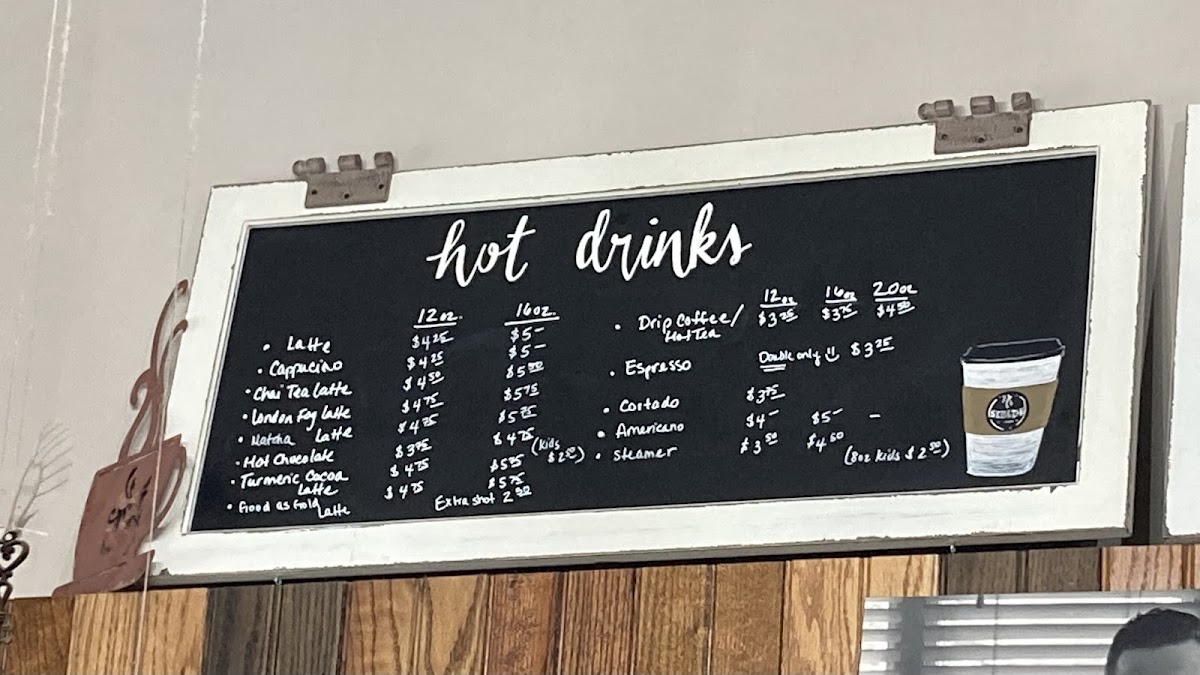 hot drinks
12oz. 16oz.
• Latte $4.25 $5–
• Cappucino $4.25 $5–
• Chai Tea Latte $4.50 $5.50
• London Fog Latte $4.75 $5.75
• Matcha Latte $4.75
• Hot Chocolate $3.75 $4.75 (kids $2.50)
• Turmeric Cocoa Latte $4.75 $5.75
• Good as Gold Latte $4.75 $5.75
Extra shot 2.50
12oz 16oz 20oz
• Drip Coffee/ $3.25 $3.75 $4.50
Hot Tea
• Espresso Double only $3.25
• Cortado $3.75
• Americano $4– $5– –
• Steamer $3.50 $4.50 (8oz kids $2.50)